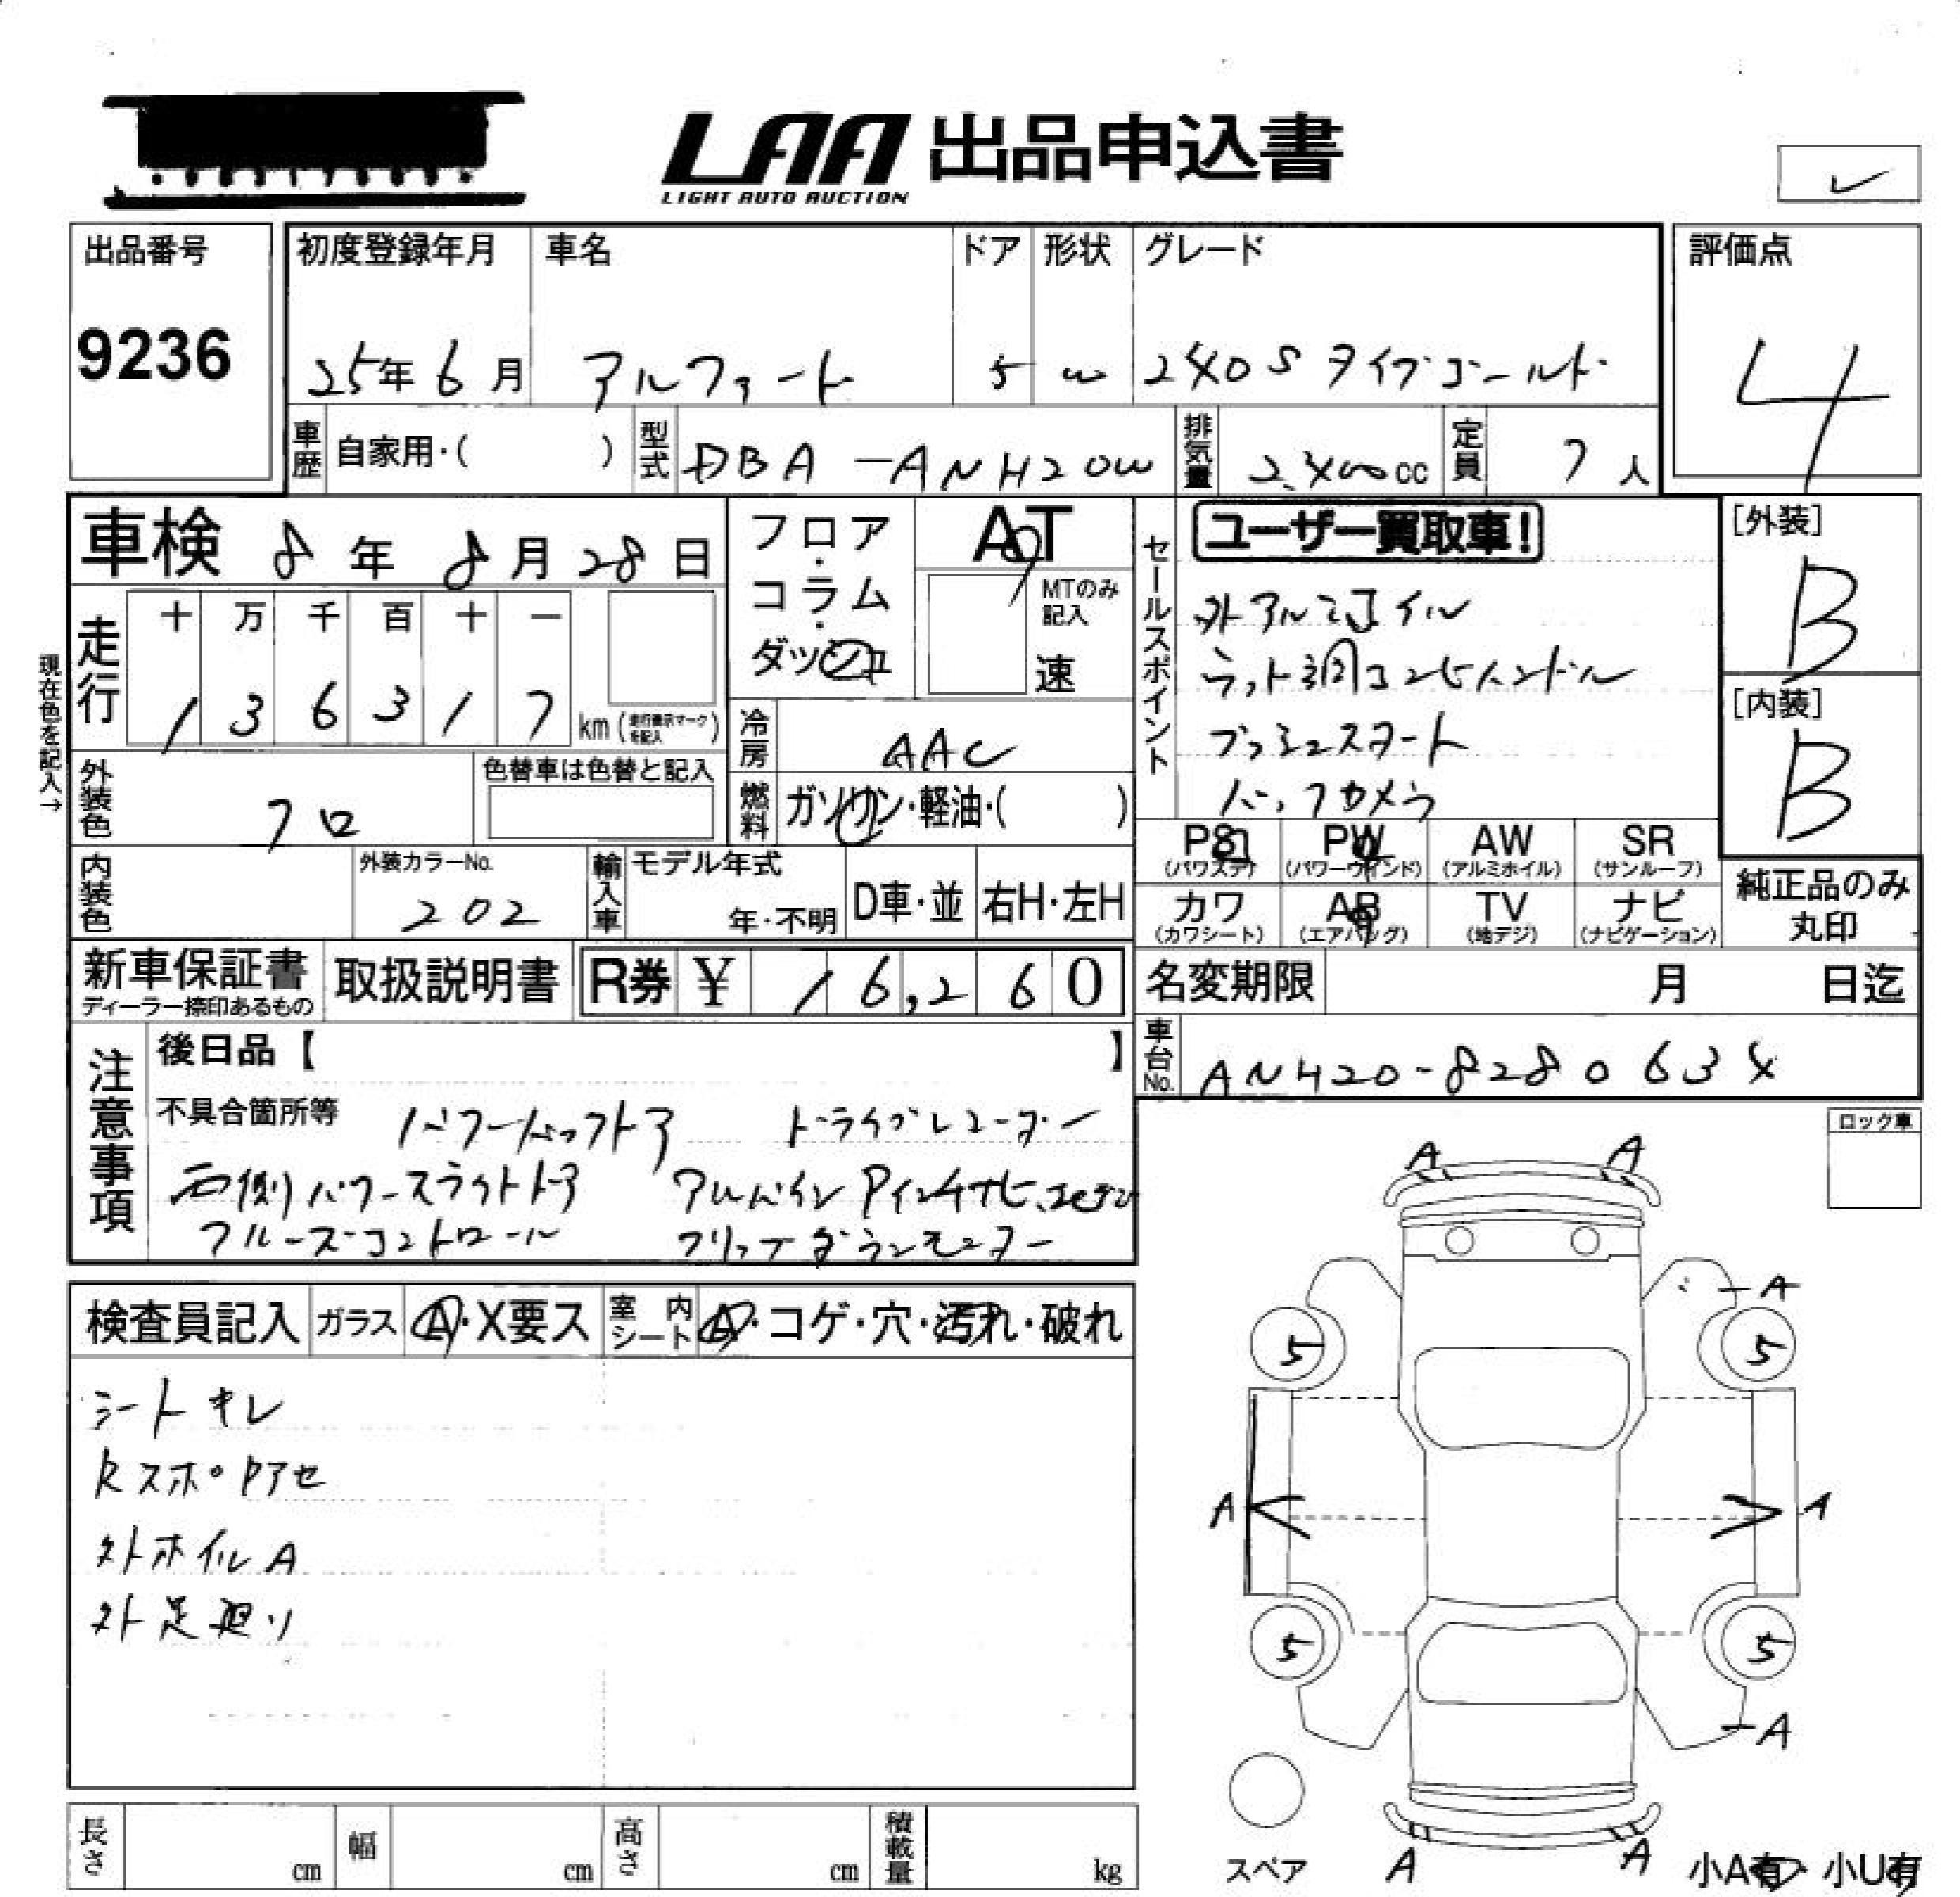 LAA 出品申込書
LIGHT AUTO AUCTION
出品番号
9236
初度登録年月
25年6月
車名
アルファード
ドア
5
形状
W
グレード
240S タイプゴールド
評価点
4
車歴
自家用・( )
型式
DBA-ANH20W
排気量
2,400cc
定員
7人
車検 8年 8月 28日
フロア・コラム・ダッシュ
AT
MTのみ記入
速
セールスポイント
ユーザー買取車!
外アルミホイル
ウッド調コンビハンドル
プッシュスタート
バックカメラ
[外装]
B
[内装]
B
現在色を記入→
走行
十 万 千 百 十 一
1 3 6 3 1 7
km (走行表示マークを記入)
冷房
AAC
外装色
クロ
色替車は色替と記入
燃料
ガソリン・軽油・( )
PS (パワステ)
PW (パワーウインド)
AW (アルミホイル)
SR (サンルーフ)
内装色
外装カラーNo.
202
輸入車
モデル年式
年・不明
D車・並
右H・左H
カワ (カワシート)
AB (エアバッグ)
TV (地デジ)
ナビ (ナビゲーション)
純正品のみ丸印
新車保証書
ディーラー捺印あるもの
取扱説明書
R券 ¥ 16,260
名変期限
月 日迄
車台No.
ANH20-8280634
注意事項
後日品【 】
不具合箇所等
パワーバックドア ドライブレコーダー
両側パワースライドドア アルパイン
クルーズコントロール フリップダウンモニター
ロック車
検査員記入
ガラス
A・X要ス
室内シート
A・コゲ・穴・汚れ・破れ
シートキレ
外ホイルA
外足廻り
A A
A
5 5
A A
5 5
A
A A
スペア
小A有・小U有
長さ cm
幅 cm
高さ cm
積載量 kg